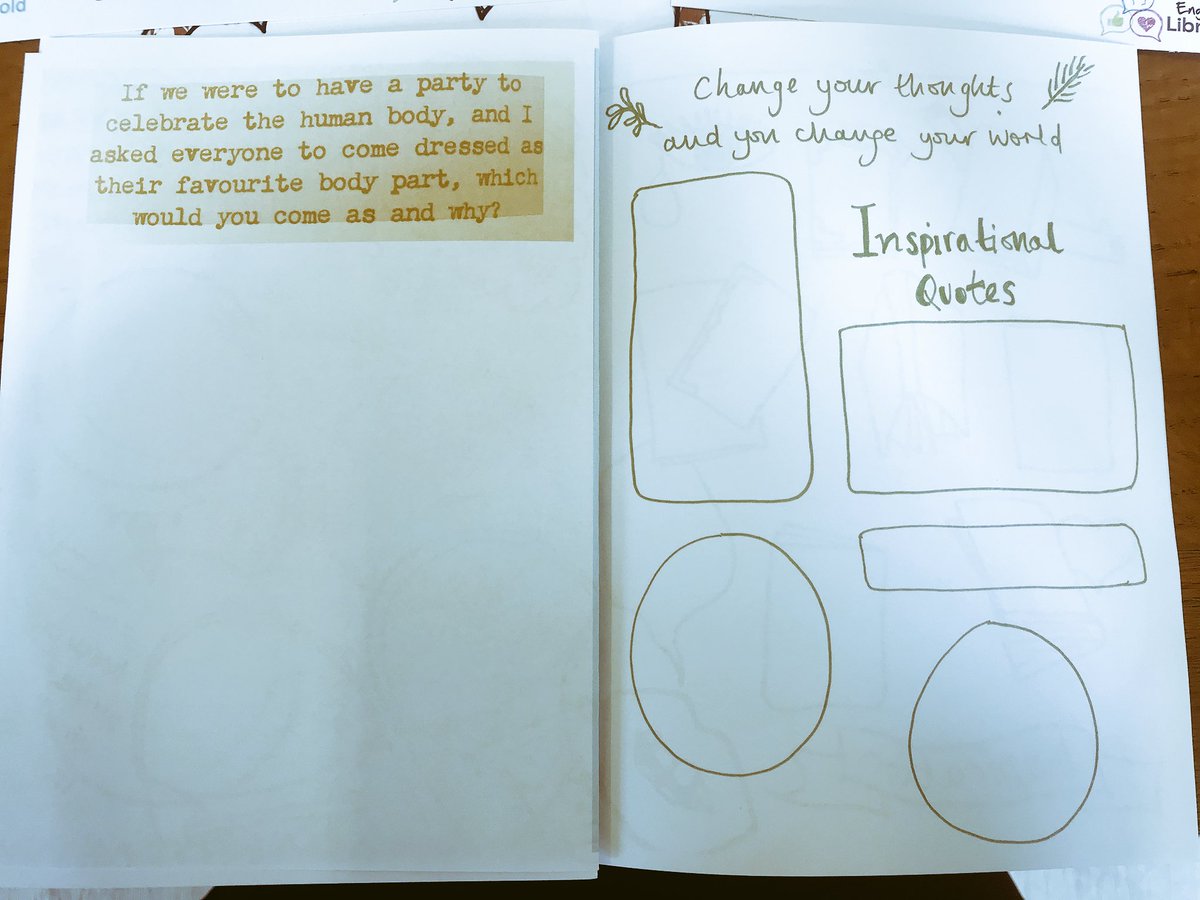 old
If we were to have a party to
celebrate the human body, and I
asked everyone to come dressed as
their favourite body part, which
would you come as and why?
Change your thoughts
and you change your world
Inspirational
Quotes